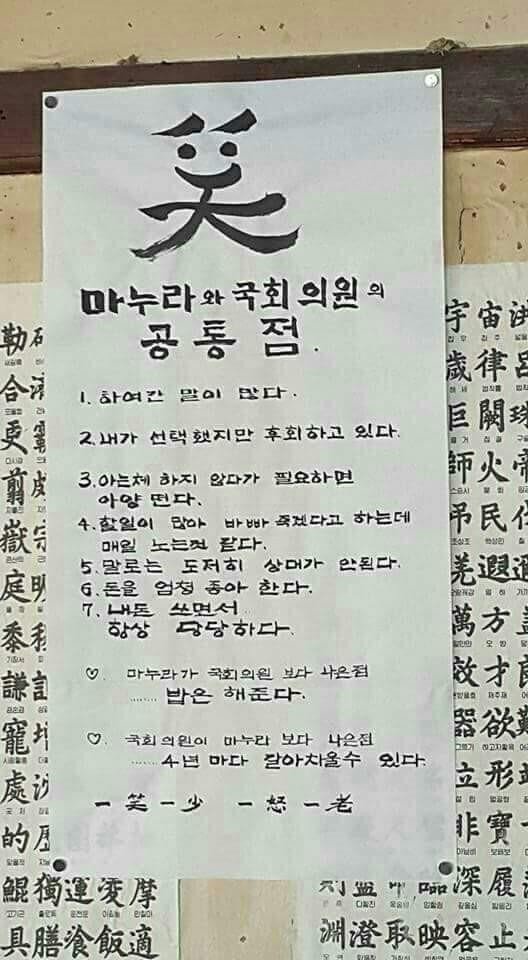 笑
마누라와 국회의원의
공통점.
1. 하여간 말이 많다.
2. 내가 선택했지만 후회하고 있다.
3. 아는체 하지 않다가 필요하면
아양 떤다.
4. 할일이 많아 바빠 죽겠다고 하는데
매일 노는것 같다.
5. 말로는 도저히 상대가 안된다.
6. 돈을 엄청 좋아 한다.
7. 내돈 쓰면서
항상 당당하다.
♡. 마누라가 국회의원 보다 나은점
........ 밥은 해준다.
♡. 국회의원이 마누라 보다 나은점
...... 4년 마다 갈아치울수 있다.
一笑一少 一怒一老
勒
合
更
翦
嶽宗
庭
黍
謙
寵增
處沈
的歷
鯤獨運凌摩
具膳飡飯適
宇宙洪
歲律呂
巨闕珠
師火帝
弔民伐
羌遐邇
萬方蓋
效才良
器欲難
立形端
非寶寸
深履薄
淵澄取映容止